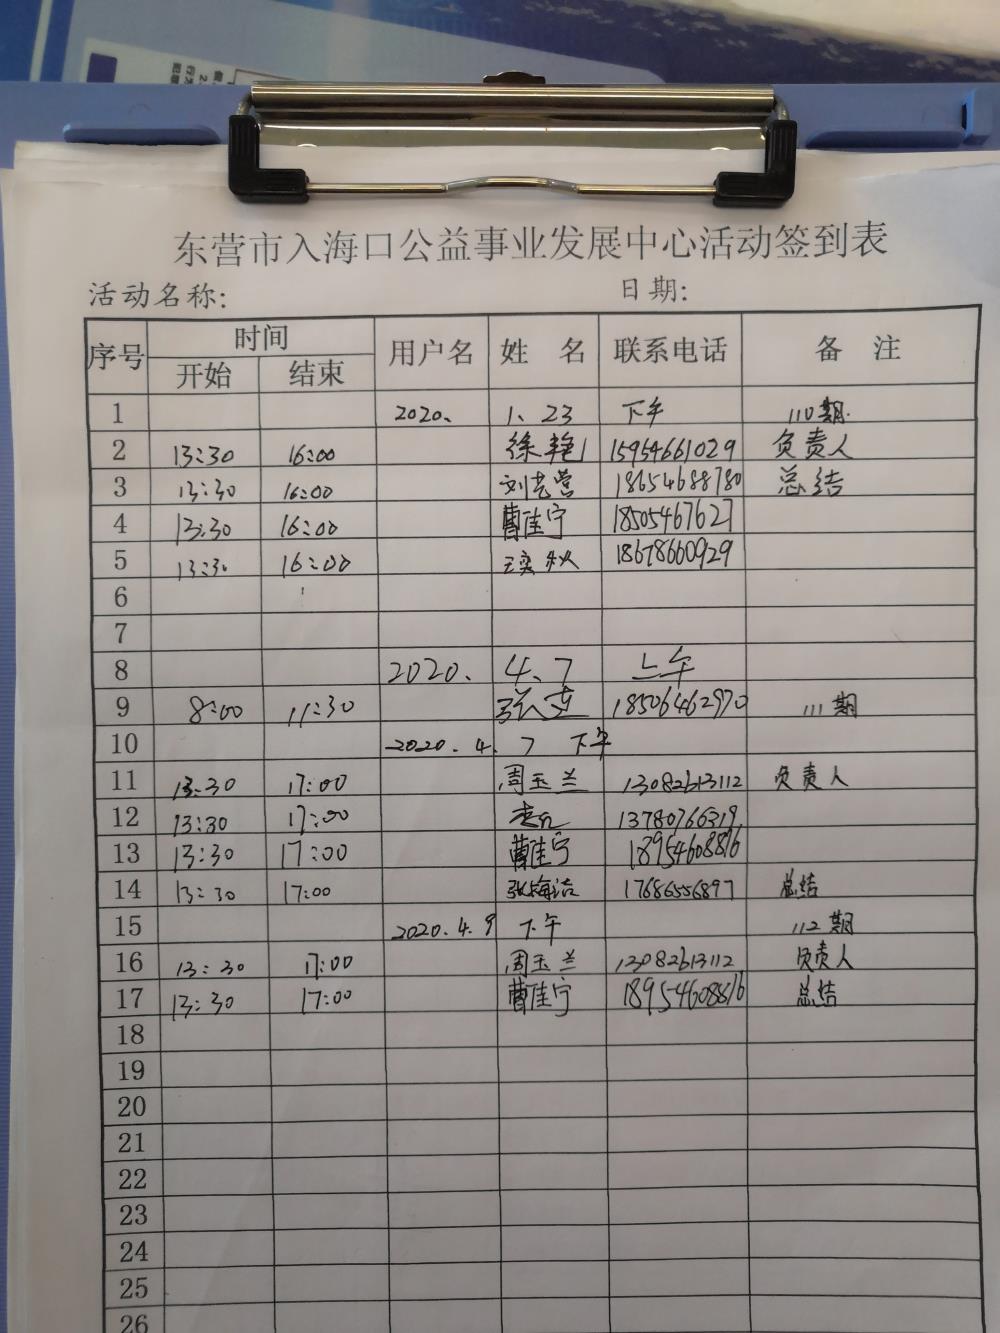 东营市入海口公益事业发展中心活动签到表
活动名称: 日期:
序号 时间 用户名 姓 名 联系电话 备 注
开始 结束
1 2020、 1、23 下午 110期
2 13:30 16:00 徐艳 15954661029 负责人
3 13:30 16:00 刘艺营 18654688780 总结
4 13:30 16:00 曹佳宁 18505467627
5 13:30 16:00 秋 18678660929
6
7
8 2020、 4、7 上午
9 8:00 11:30 张连 18506462970 111期
10 2020.4.7 下午
11 13:30 17:00 周玉兰 13082613112 负责人
12 13:30 17:00 13780766319
13 13:30 17:00 曹佳宁 18954608816
14 13:30 17:00 张梅洁 17686556897 总结
15 2020.4.9 下午 112期
16 13:30 17:00 周玉兰 13082613112 负责人
17 13:30 17:00 曹佳宁 18954608816 总结
18
19
20
21
22
23
24
25
26